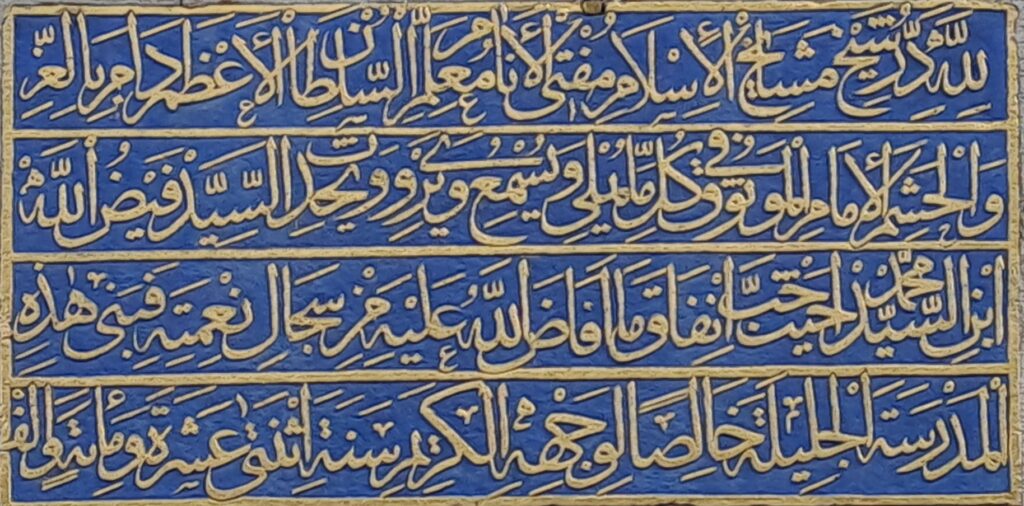 لله در شيخ مشايخ الإسلام مفتي الأنام معلم السلطان الأعظم دام بالعز
والحشم الإمام الموثوق في كل ما يملي ويسمع ويروي ويحدث السيد فيض الله
ابن السيد محمد احب انفاق ما افاض الله عليه من سجال نعمته فبنى هذه
المدرسة الجليلة خالصا لوجهه الكريم سنة اثنتي عشرة ومائة والف